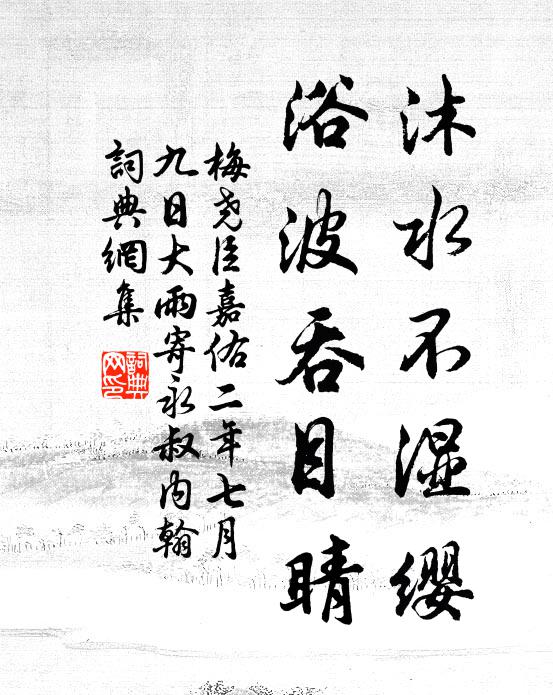 沐水不湿缨
浴波吞目睛
梅尧臣嘉佑二年七月
九日大雨寄永叔内翰
詞典網集
詞典
网印